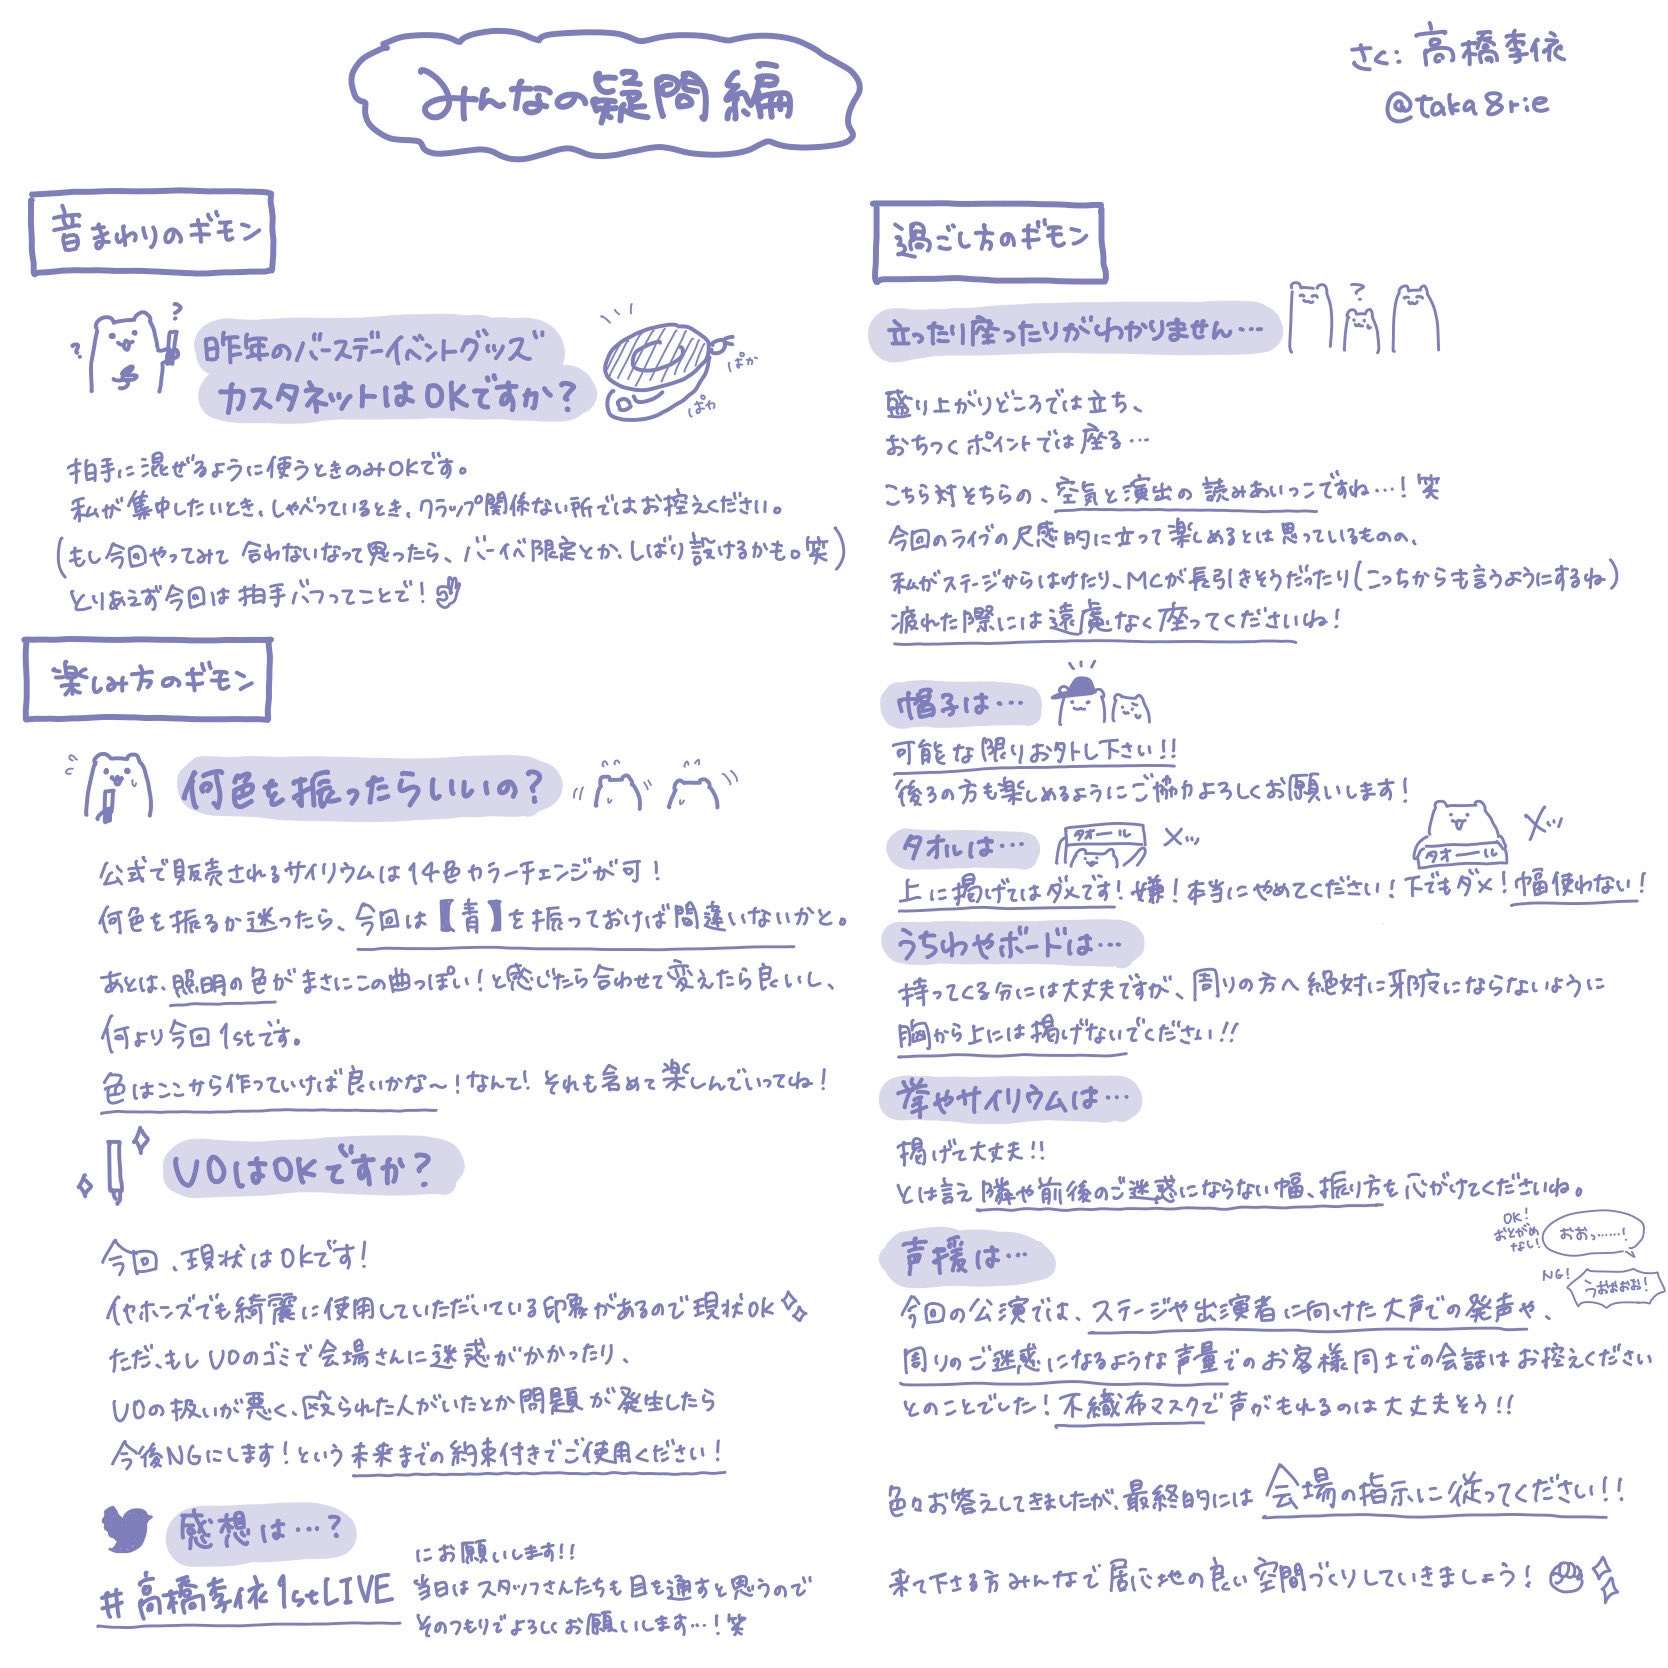 みんなの疑問編
さく：高橋李依
@taka8rie
音まわりのギモン
?
?
昨年のバースデーイベントグッズ
カスタネットはOKですか？
ぱか
ぱか
拍手に混ぜるように使うときのみOKです。
私が集中したいとき、しゃべっているとき、クラップ関係ない所ではお控えください。
(もし今回やってみて合わないなって思ったら、バーイベ限定とか、しばり設けるかも。笑)
とりあえず今回は拍手バフってことで！
楽しみ方のギモン
何色を振ったらいいの？
公式で販売されるサイリウムは14色カラーチェンジが可！
何色を振るか迷ったら、今回は【青】を振っておけば間違いないかと。
あとは、照明の色がまさにこの曲っぽい！と感じたら合わせて変えたら良いし、
何より今回1stです。
色はここから作っていけば良いかな〜！なんて！それも含めて楽しんでいってね！
UOはOKですか？
今回、現状はOKです！
イヤホンズでも綺麗に使用していただいている印象があるので現状OK
ただ、もしUOのゴミで会場さんに迷惑がかかったり、
UOの扱いが悪く、殴られた人がいたとか問題が発生したら
今後NGにします！という未来までの約束付きでご使用ください！
感想は…？
#高橋李依1stLIVE
にお願いします!!
当日はスタッフさんたちも目を通すと思うので
そのつもりでよろしくお願いします…！笑
過ごし方のギモン
立ったり座ったりがわかりません…
?
盛り上がりどころでは立ち、
おちつくポイントでは座る…
こちら対そちらの、空気と演出の読みあいっこですね…！笑
今回のライブの尺感的に立って楽しめるとは思っているものの、
私がステージからはけたり、MCが長引きそうだったり(こっちからも言うようにするね)
疲れた際には遠慮なく座ってくださいね！
帽子は…
可能な限りお外し下さい!!
後ろの方も楽しめるようにご協力よろしくお願いします！
タオルは…
タオール
タオール
上に掲げてはダメです！嫌！本当にやめてください！下でもダメ！幅使わない！
うちわやボードは…
持ってくる分には大丈夫ですが、周りの方へ絶対に邪魔にならないように
胸から上には掲げないでください!!
拳やサイリウムは…
掲げて大丈夫!!
とは言え隣や前後のご迷惑にならない幅、振り方を心がけてくださいね。
声援は…
OK！
おとがめ
なし！
おおっ……！
NG！
うおぉぉぉ！
今回の公演では、ステージや出演者に向けた大声での発声や、
周りのご迷惑になるような声量でのお客様同士での会話はお控えください
とのことでした！不織布マスクで声がもれるのは大丈夫そう!!
色々お答えしてきましたが、最終的には会場の指示に従ってください!!
来て下さる方みんなで居心地の良い空間づくりしていきましょう！